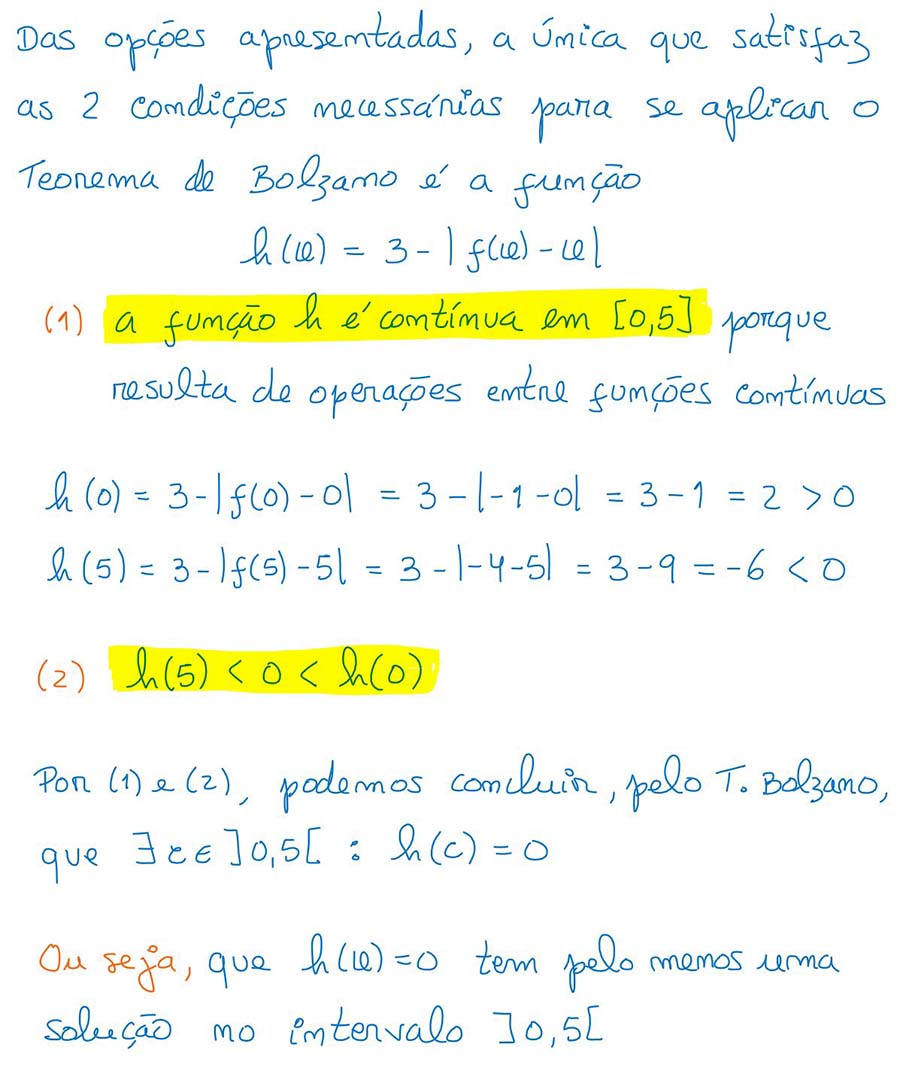 Das opções apresentadas, a única que satisfaz
as 2 condições necessárias para se aplicar o
Teorema de Bolzano é a função
h(x) = 3 - |f(x) - x|
(1) a função h é contínua em [0,5] porque
resulta de operações entre funções contínuas
h(0) = 3-|f(0)-0| = 3-|-1-0| = 3-1 = 2 > 0
h(5) = 3-|f(5)-5| = 3-|-4-5| = 3-9 = -6 < 0
(2) h(5) < 0 < h(0)
Por (1) e (2), podemos concluir, pelo T. Bolzano,
que ∃ c ∈ ]0,5[ : h(c) = 0
Ou seja, que h(x)=0 tem pelo menos uma
solução no intervalo ]0,5[